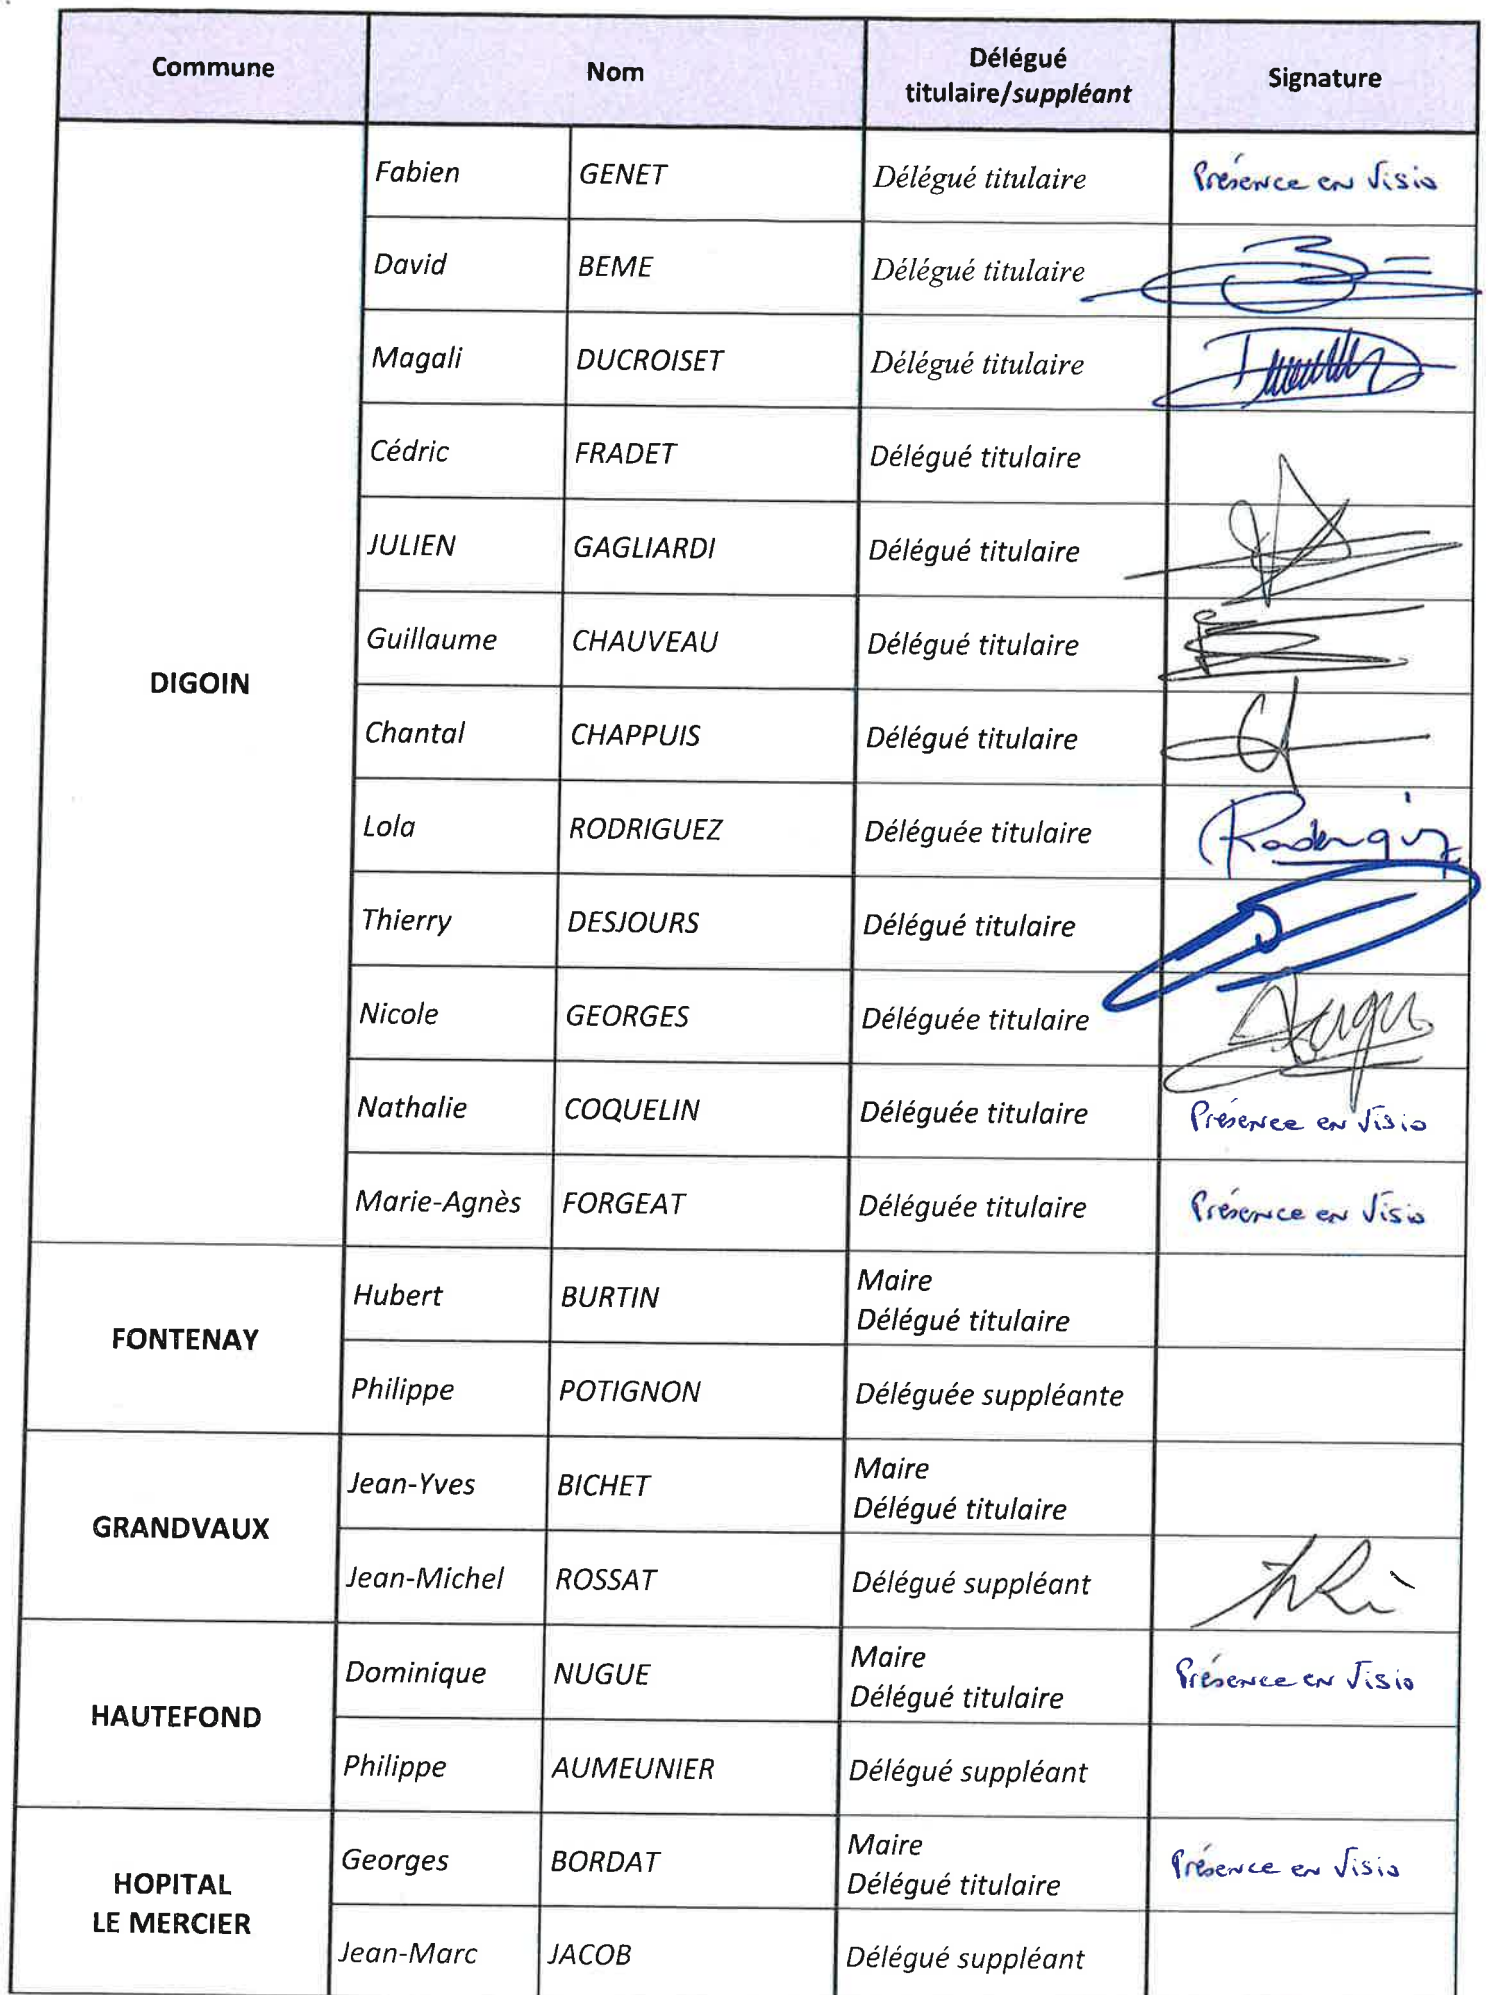 Commune Nom Délégué titulaire/suppléant Signature
DIGOIN
Fabien GENET Délégué titulaire Présence en Visio
David BEME Délégué titulaire
Magali DUCROISET Délégué titulaire
Cédric FRADET Délégué titulaire
JULIEN GAGLIARDI Délégué titulaire
Guillaume CHAUVEAU Délégué titulaire
Chantal CHAPPUIS Délégué titulaire
Lola RODRIGUEZ Déléguée titulaire
Thierry DESJOURS Délégué titulaire
Nicole GEORGES Déléguée titulaire
Nathalie COQUELIN Déléguée titulaire Présence en Visio
Marie-Agnès FORGEAT Déléguée titulaire Présence en Visio
FONTENAY
Hubert BURTIN Maire
Délégué titulaire
Philippe POTIGNON Déléguée suppléante
GRANDVAUX
Jean-Yves BICHET Maire
Délégué titulaire
Jean-Michel ROSSAT Délégué suppléant
HAUTEFOND
Dominique NUGUE Maire
Délégué titulaire Présence en Visio
Philippe AUMEUNIER Délégué suppléant
HOPITAL
LE MERCIER
Georges BORDAT Maire
Délégué titulaire Présence en Visio
Jean-Marc JACOB Délégué suppléant